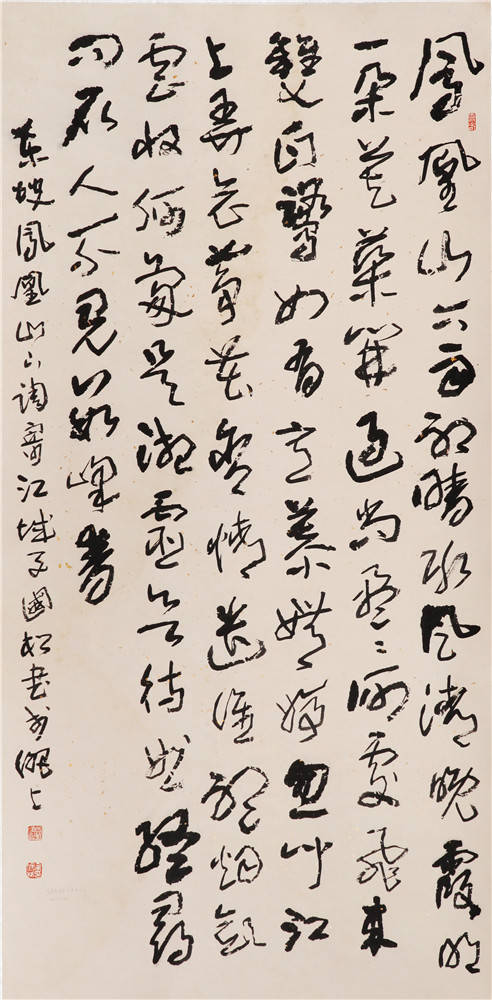 鳳凰山下雨初晴水風清晚霞明
一朵芙蕖開過尚盈盈何處飛來
雙白鷺如有意慕娉婷忽聞江
上弄哀箏苦含情遣誰聽煙斂
雲收依約是湘靈欲待曲終尋
問取人不見數峰青
東坡鳳凰山下調寄江城子國松書於